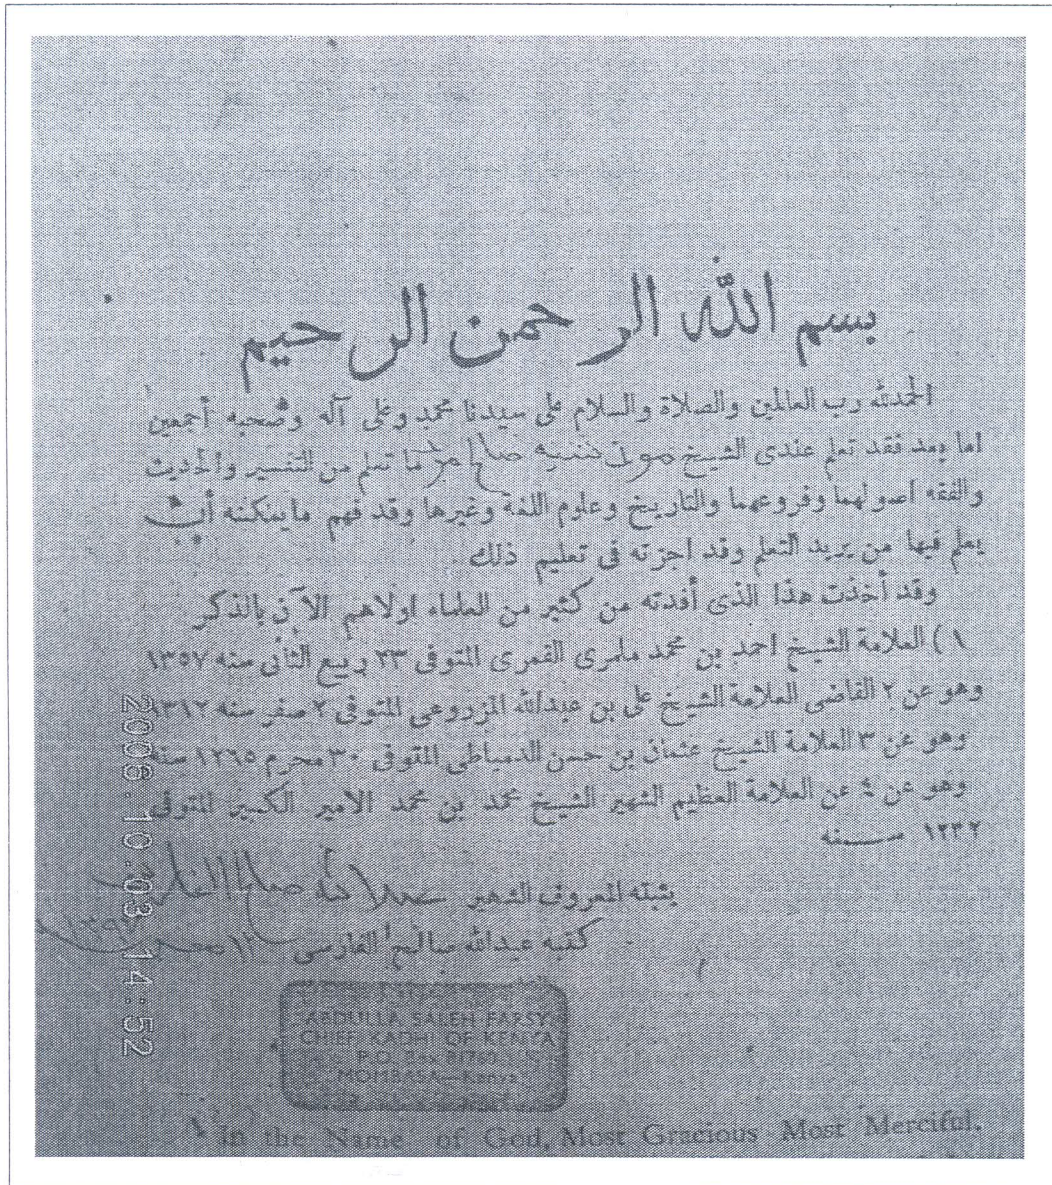 بسم الله الرحمن الرحيم
الحمدلله رب العالمين والصلاة والسلام على سيدنا محمد وعلى آله وصحبه أجمعين
اما بعد فقد تعلم عندى الشيخ ما تعلم من التفسير والحديث
والفقه اصولهما وفروعهما والتاريخ وعلوم اللغة وغيرها وقد فهم مايمكنه أن
يعلم فيها من يريد التعلم وقد اجزته فى تعليم ذلك
وقد أخذت هذا الذى أفدته من كثير من العلماء اولاهم الآتى بالذكر
١) العلامة الشيخ احمد بن محمد ملمرى القمرى المتوفى ٢٣ ربيع الثانى سنه ١٣٥٧
وهو عن ٢ القاضى العلامة الشيخ على بن عبدالله المزروعى المتوفى ٢ صفر سنه ١٣١٢
وهو عن ٣ العلامة الشيخ عثمان بن حسن الدمياطى المتوفى ٣٠ محرم ١٢٦٥ سنة
وهو عن ٤ عن العلامة العظيم الشهير الشيخ محمد بن محمد الامير الكبير المتوفى
١٢٣٢ سنه
يثبته المعروف الشهير عبدالله صالح الفارسى
كتبه عبدالله صالح الفارسى ١٢ صفر
ABDULLA SALEH FARSY
CHIEF KADHI OF KENYA
P.O. Box
MOMBASA—Kenya
In the Name of God, Most Gracious Most Merciful.
2006.10.03 14:52